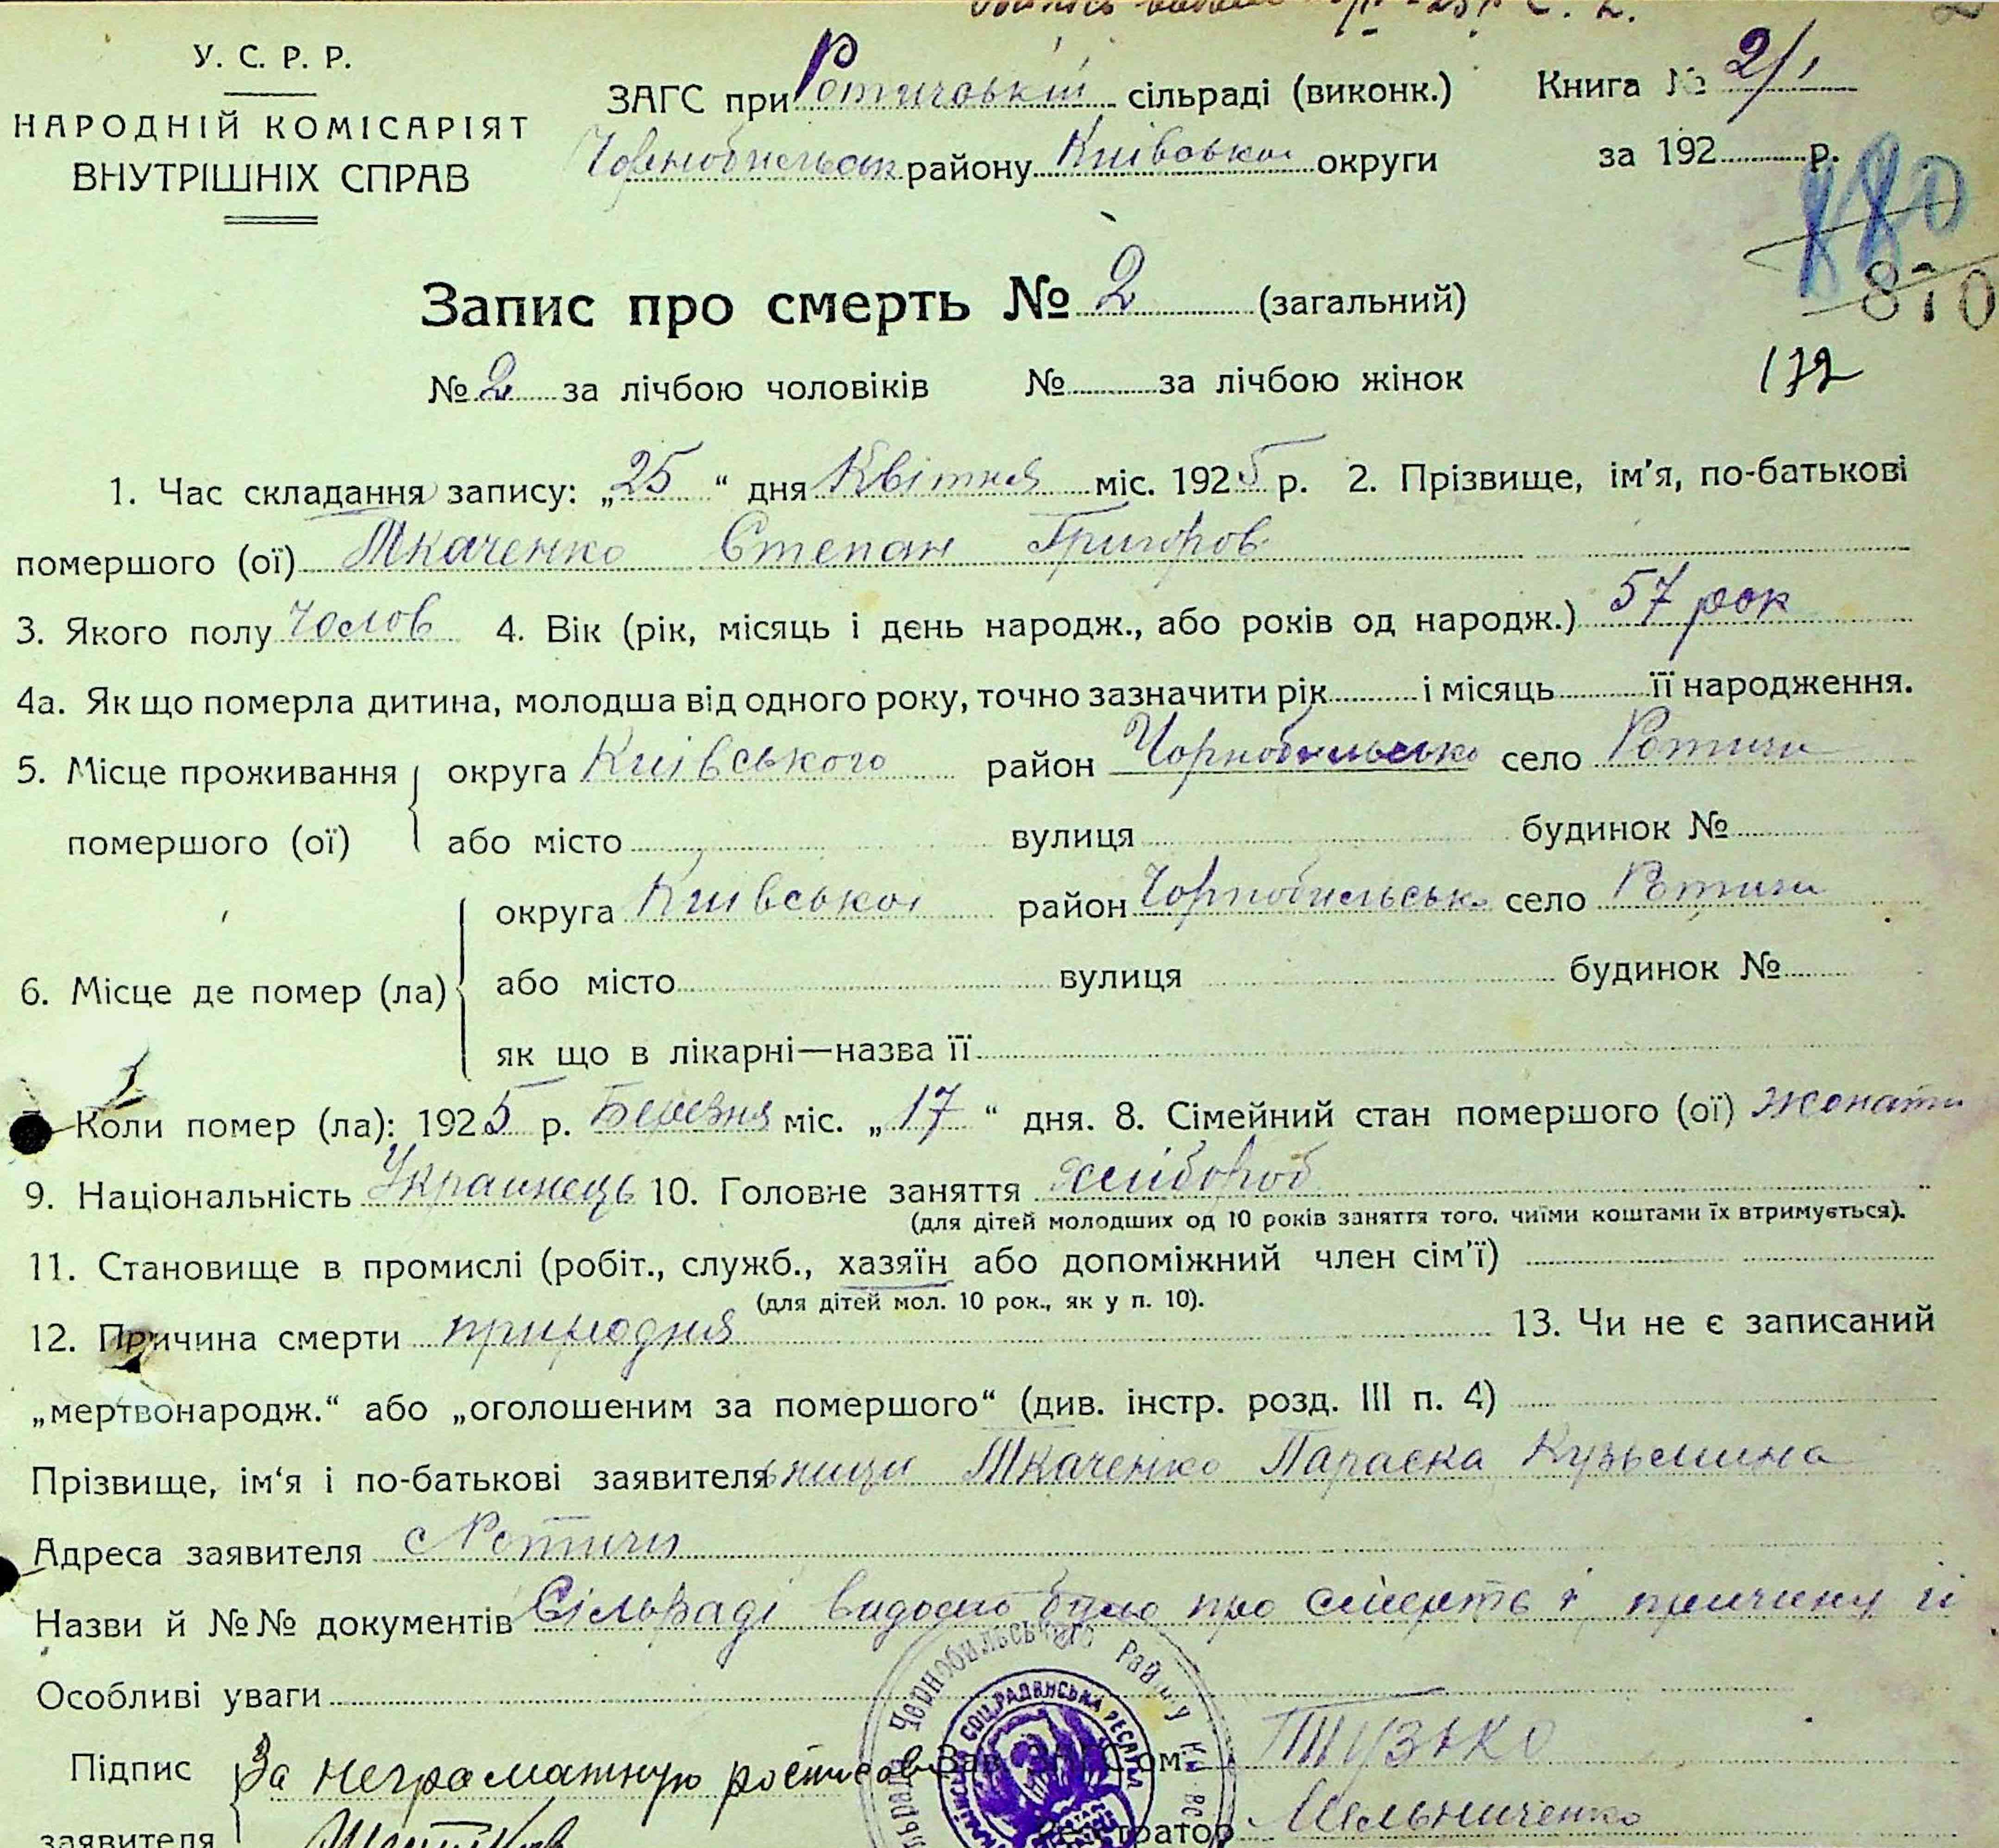 У. С. Р. Р.
НАРОДНІЙ КОМІСАРІЯТ
ВНУТРІШНІХ СПРАВ
ЗАГС при Ротичовькій сільраді (виконк.)
Книга № 2/1
району Київської округи
за 192 р.
880
870
Запис про смерть № 2 (загальний)
№ 2 за лічбою чоловіків № за лічбою жінок
172
1. Час складання запису: „25“ дня Квітня міс. 1925 р. 2. Прізвище, ім'я, по-батькові
помершого (ої) Ткаченко Степан Григоров
3. Якого полу Чолов 4. Вік (рік, місяць і день народж., або років од народж.) 57 рок
4а. Як що померла дитина, молодша від одного року, точно зазначити рік і місяць її народження.
5. Місце проживання округа Київського район Чорнобильсько село Ротичи
помершого (ої) або місто вулиця будинок №
округа Київської район Чорнобильськ село Ротичи
6. Місце де помер (ла) або місто вулиця будинок №
як що в лікарні—назва її
Коли помер (ла): 1925 р. Березня міс. „17“ дня. 8. Сімейний стан помершого (ої) жонати
9. Національність Украинець 10. Головне заняття хлибороб
(для дітей молодших од 10 років заняття того, чиїми коштами їх втримується).
11. Становище в промислі (робіт., служб., хазяїн або допоміжний член сім'ї)
(для дітей мол. 10 рок., як у п. 10).
12. Причина смерти природня 13. Чи не є записаний
„мертвонародж.“ або „оголошеним за помершого“ (див. інстр. розд. III п. 4)
Прізвище, ім'я і по-батькові заявительници Ткаченко Параска Кузьмина
Адреса заявителя с Ротичи
Назви й №№ документів Сільраді видомо було про смерть і причину її
Особливі уваги
Підпис За неграматную росписов Зав. ЗАГС'ом Тузько
заявителя Реєстратор Мельниченко
Чернобильського Району
СОЦ. РАДЯНСЬКА РЕСПУБ